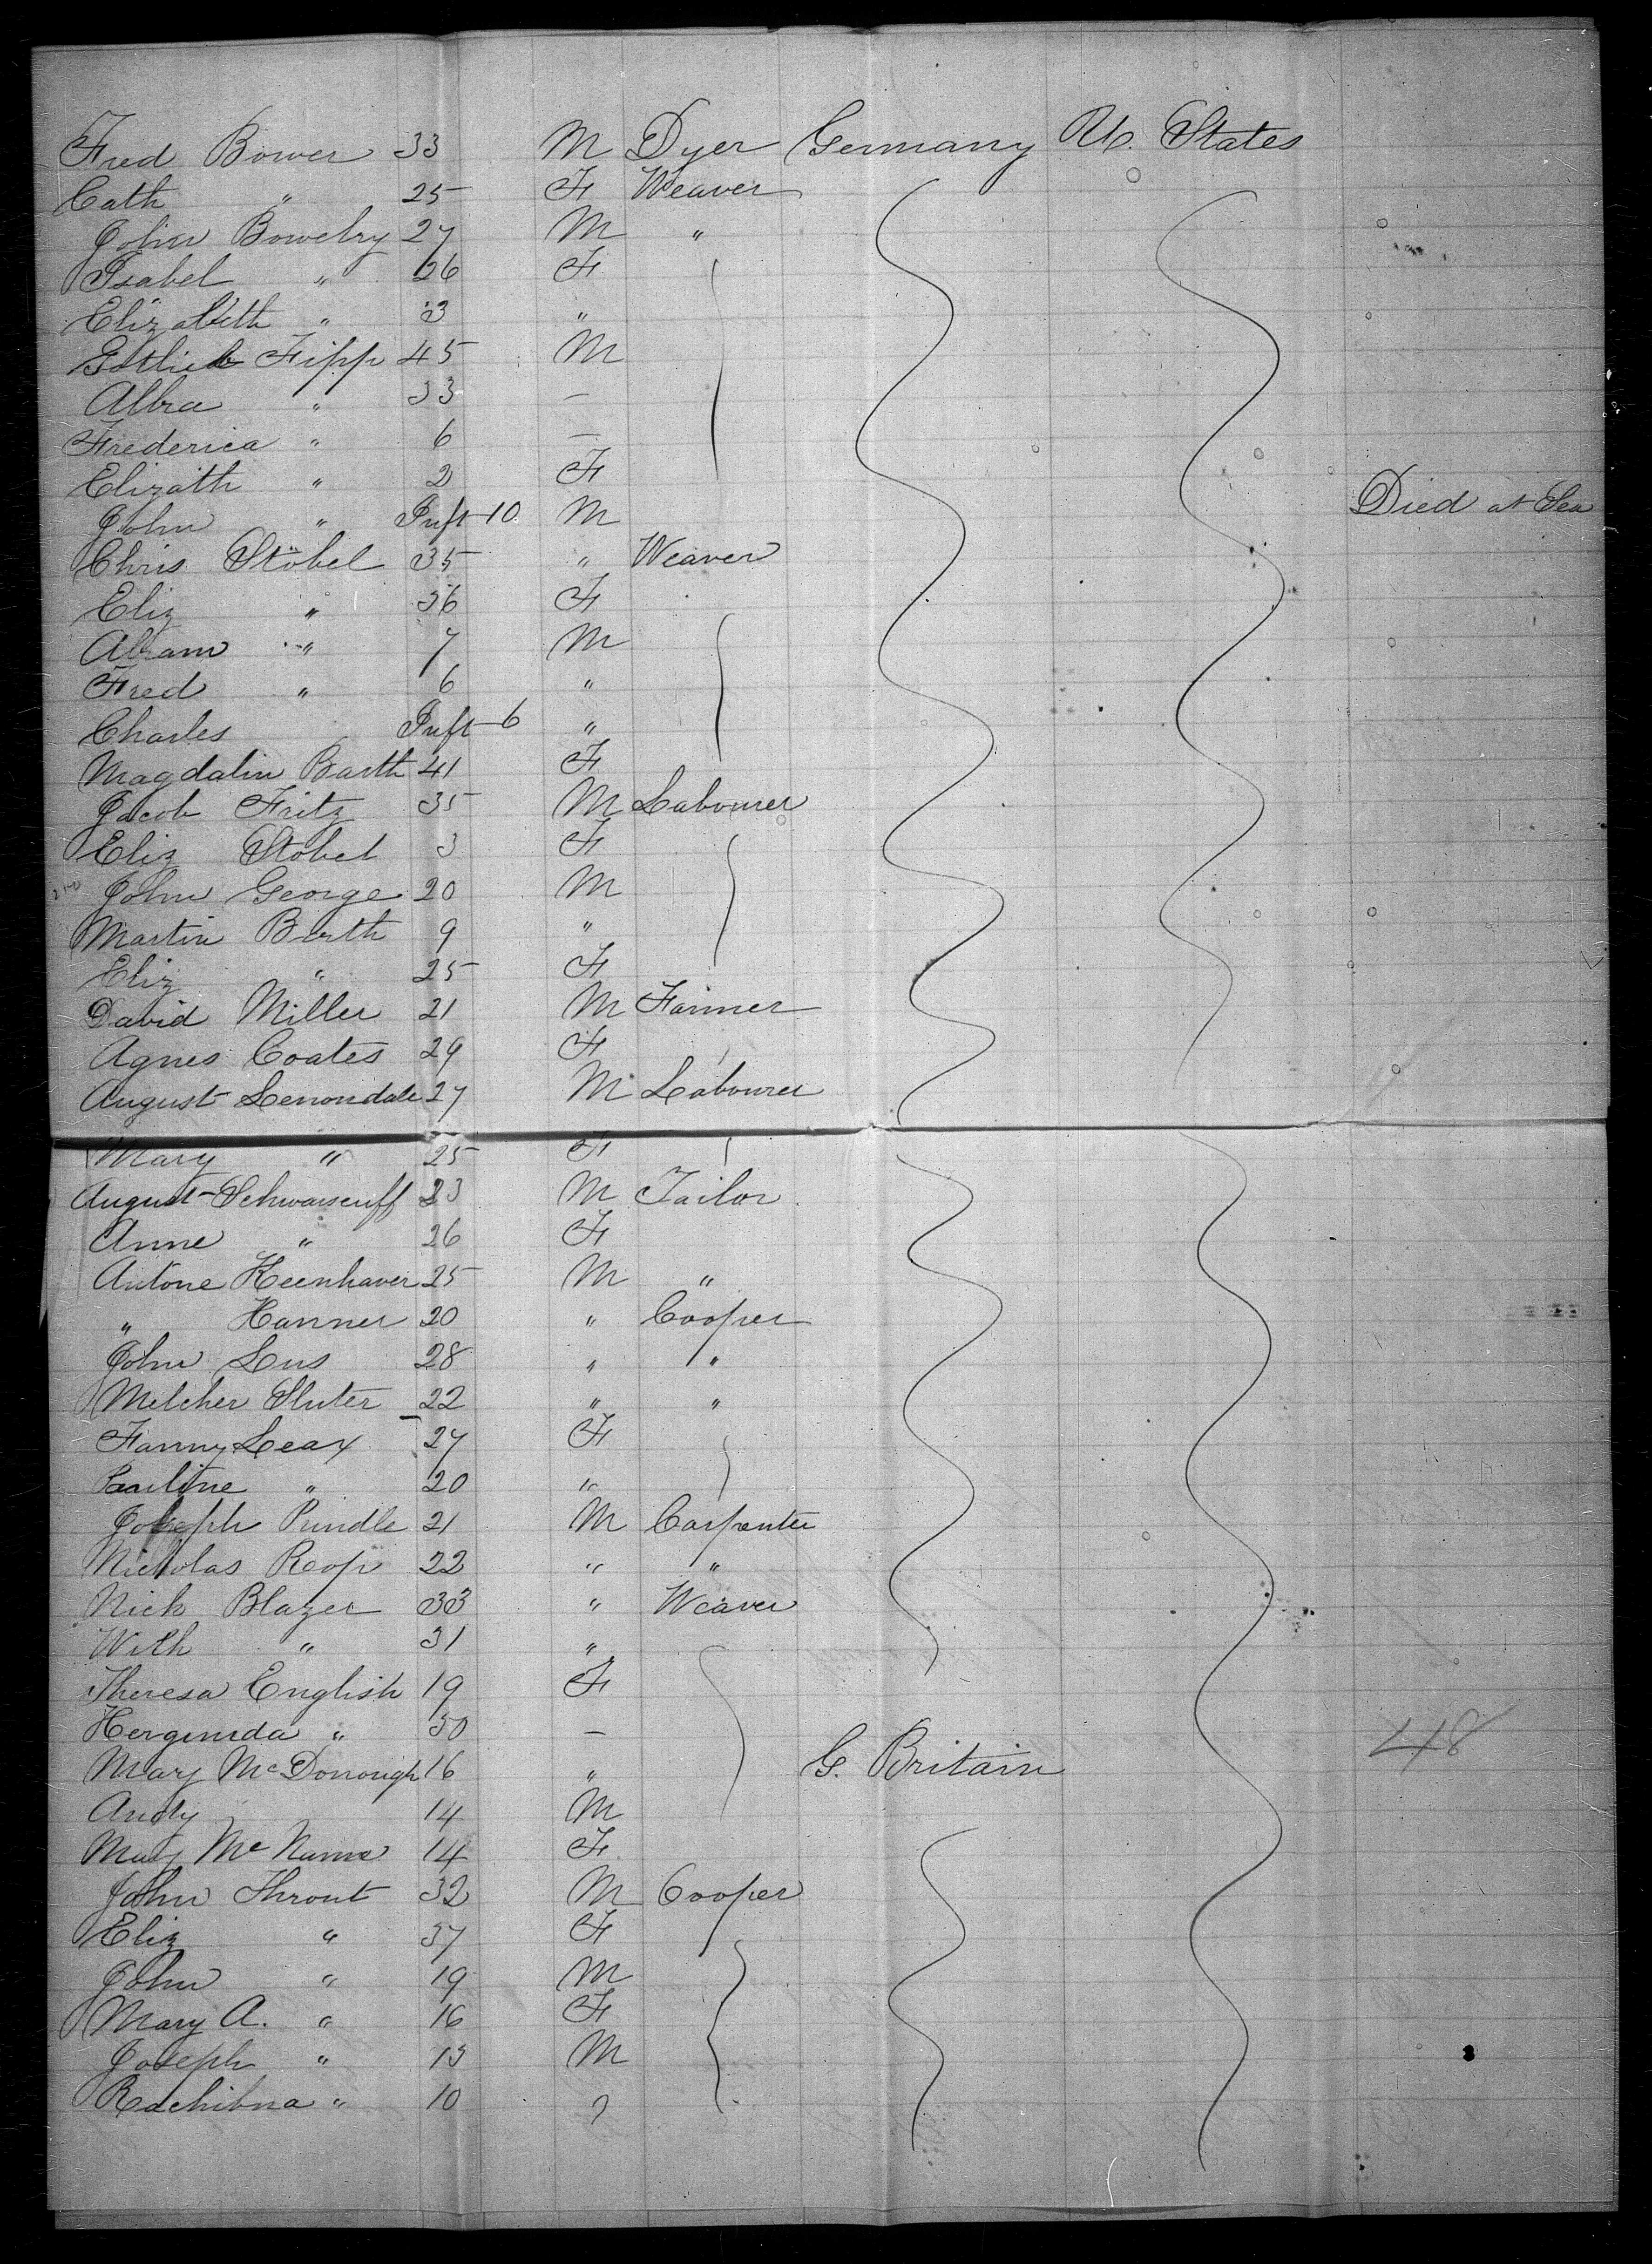 Fred Bower 33 M Dyer Germany U. States
Cath " 25 F Weaver
John Bowelry 27 M "
Isabel " 26 F
Elizabeth " 3 "
Gotlieb Fipp 45 M
Albra " 33 —
Frederica " 6 —
Elizath " 2 F
John " Inft 10 M Died at Sea
Chris Stöbel 35 " Weaver
Eliz " 36 F
Abram " 7 M
Fred " 6 "
Charles Inft 6 "
Magdalin Barth 41 F
Jacob Fritz 35 M Labourer
Eliz Stobel 3 F
John George 20 M
Martin Barth 9 "
Eliz " 25 F
David Miller 21 M Farmer
Agnes Coates 29 F
August Lenondale 27 M Labourer
Mary " 25 F
August 23 M Tailor
Anne " 26 F
Antone Keenhaver 25 M "
" Hanner 20 " Cooper
John Lus 28 " "
Melcher Sluter 22 " "
Fanny Leax 27 F
Pauline " 20 "
Joseph Pundle 21 M Carpenter
Nicholas Roop 22 " "
Nick Blazer 33 " Weaver
With " 31 "
Theresa English 19 F
" 30 —
Mary McDonough 16 " G. Britain 48
Andy 14 M
Mary Mc Name 14 F
John Thront 32 M Cooper
Eliz " 37 F
John " 19 M
Mary A. " 16 F
Joseph " 13 M
Rachibna " 10 ?